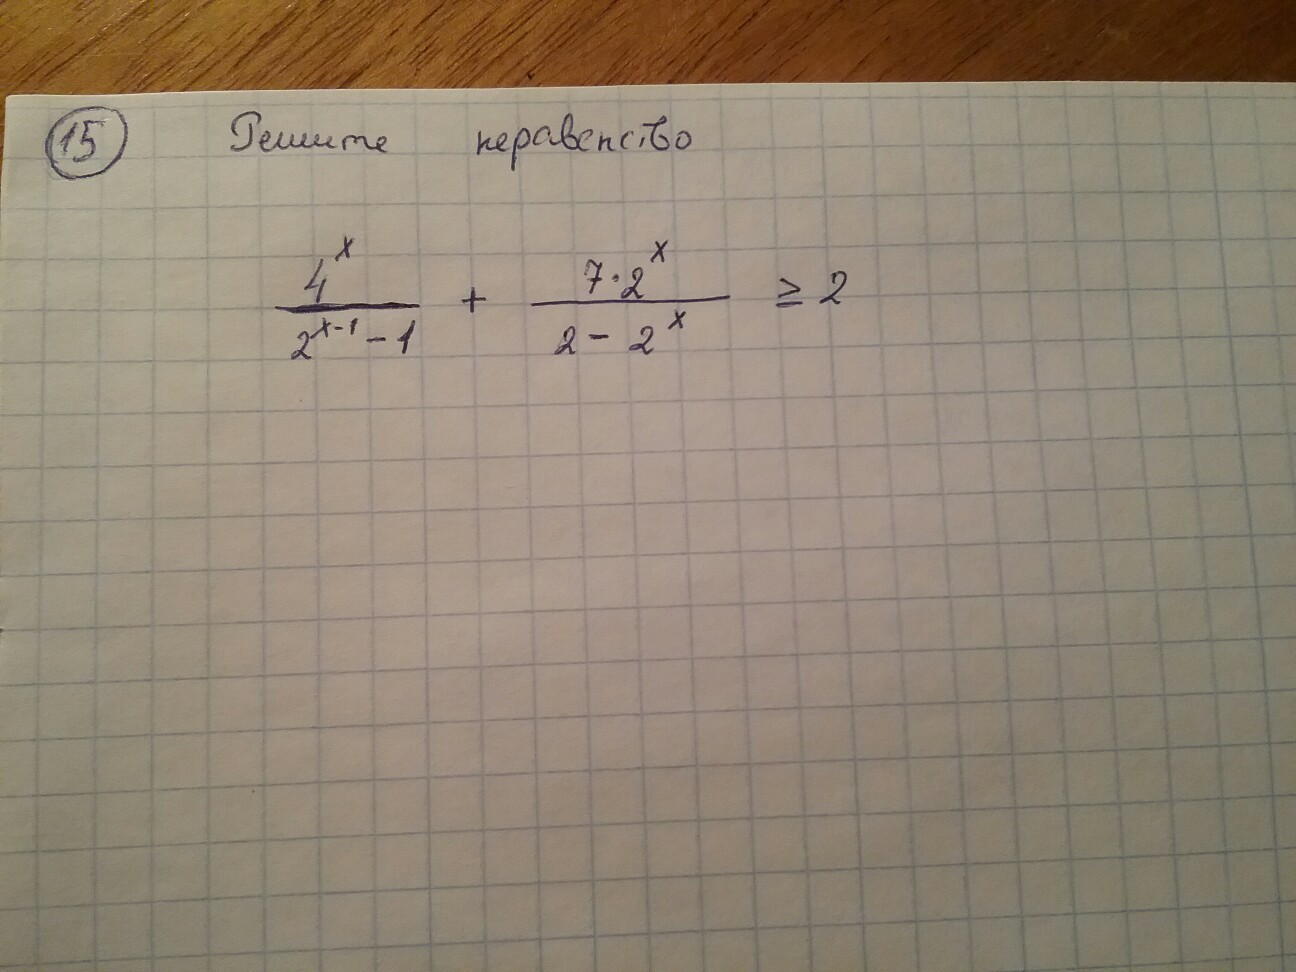 15 Решите неравенство
4^x / (2^(x-1) - 1) + 7·2^x / (2 - 2^x) ≥ 2